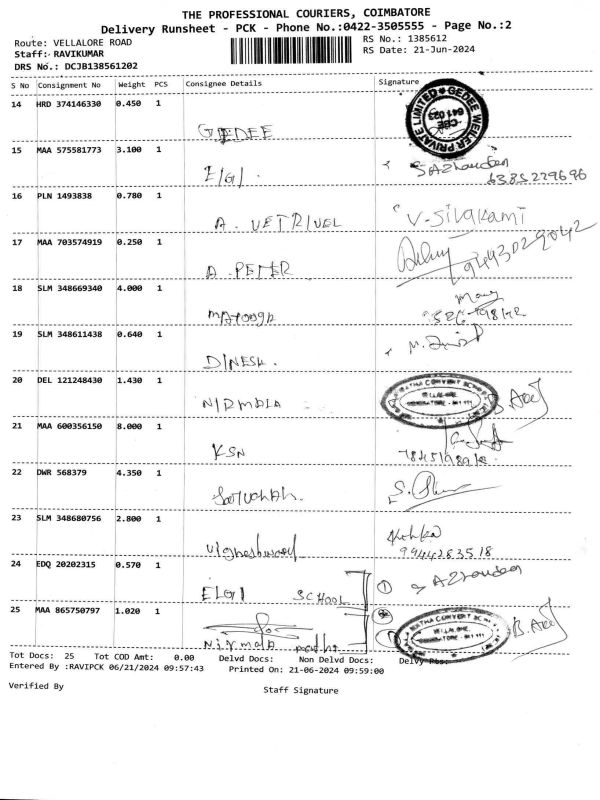 THE PROFESSIONAL COURIERS, COIMBATORE
Delivery Runsheet - PCK - Phone No.:0422-3505555 - Page No.:2
Route: VELLALORE ROAD
RS No.: 1385612
Staff: RAVIKUMAR
RS Date: 21-Jun-2024
DRS No.: DCJB138561202
S No Consignment No Weight PCS Consignee Details Signature
14 HRD 374146330 0.450 1
GEDEE
GEDEE WEILER PRIVATE LIMITED
CBE
641 023
15 MAA 575581773 3.100 1
E/G/.
6385229696
16 PLN 1493838 0.780 1
A. VETRIVEL V-Sivakami
17 MAA 703574919 0.250 1
A. PETER 9443029042
18 SLM 348669340 4.000 1
19 SLM 348611438 0.640 1
DINESH.
20 DEL 121248430 1.430 1
NIRMALA
21 MAA 600356150 8.000 1
KSN
22 DWR 568379 4.350 1
23 SLM 348680756 2.800 1
Vigneshwaral
9944283518
24 EDQ 20202315 0.570 1
ELGI SCHOOL
25 MAA 865750797 1.020 1
Nirmala
Tot Docs: 25 Tot COD Amt: 0.00 Delvd Docs: Non Delvd Docs: Delvy Hbs:
Entered By :RAVIPCK 06/21/2024 09:57:43 Printed On: 21-06-2024 09:59:00
Verified By
Staff Signature